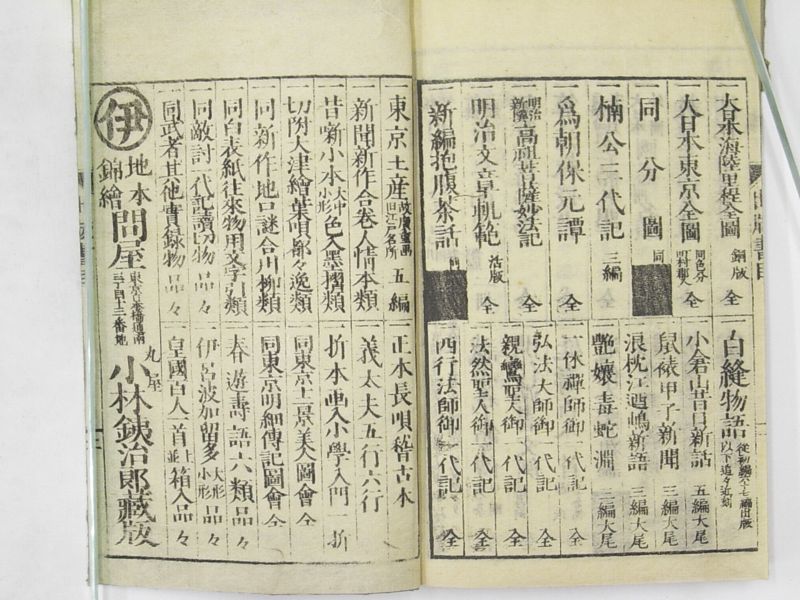 大日本海陸里程全圖 銅版 全
大日本東京全圖 全
同分圖 同
楠公三代記 三編
爲朝保元譚 全
明治新撰 高祖菩薩妙法記 全
明治文章軌範 活版 全
新編抱腹茶話
白縫物語
小倉山昔日新話 五編大尾
鼠𧝒甲子新聞 三編大尾
浪枕江嶋新語 三編大尾
艶孃毒蛇淵 二編大尾
一休禪師御一代記 全
弘法大師御一代記 全
親鸞聖人御一代記 全
法然聖人御一代記 全
西行法師御一代記 全
東京土産 五編
一新聞新作合卷人情本類
一昔噺小本 大中小形 色入墨摺類
一切附大津繪葉唄都々逸類
一同新作地口謎合川柳類
一同白表紙往來物用文字引類
一同敵討一代記讀切物品々
一同武者其他實録物品々
一正本長唄稽古本
一義太夫五行六行
一折本畫入小學入門 一折
一同東京上景美人圖會 全
一同東京明細傳記圖會 全
一春遊壽語六類品々
一伊呂波加留多 大形小形 品々
一皇國百人一首 並上 箱入品々
伊
地本
錦繪
問屋
東京日本橋通南
三丁目十三番地
丸屋
小林鉄治郎藏版